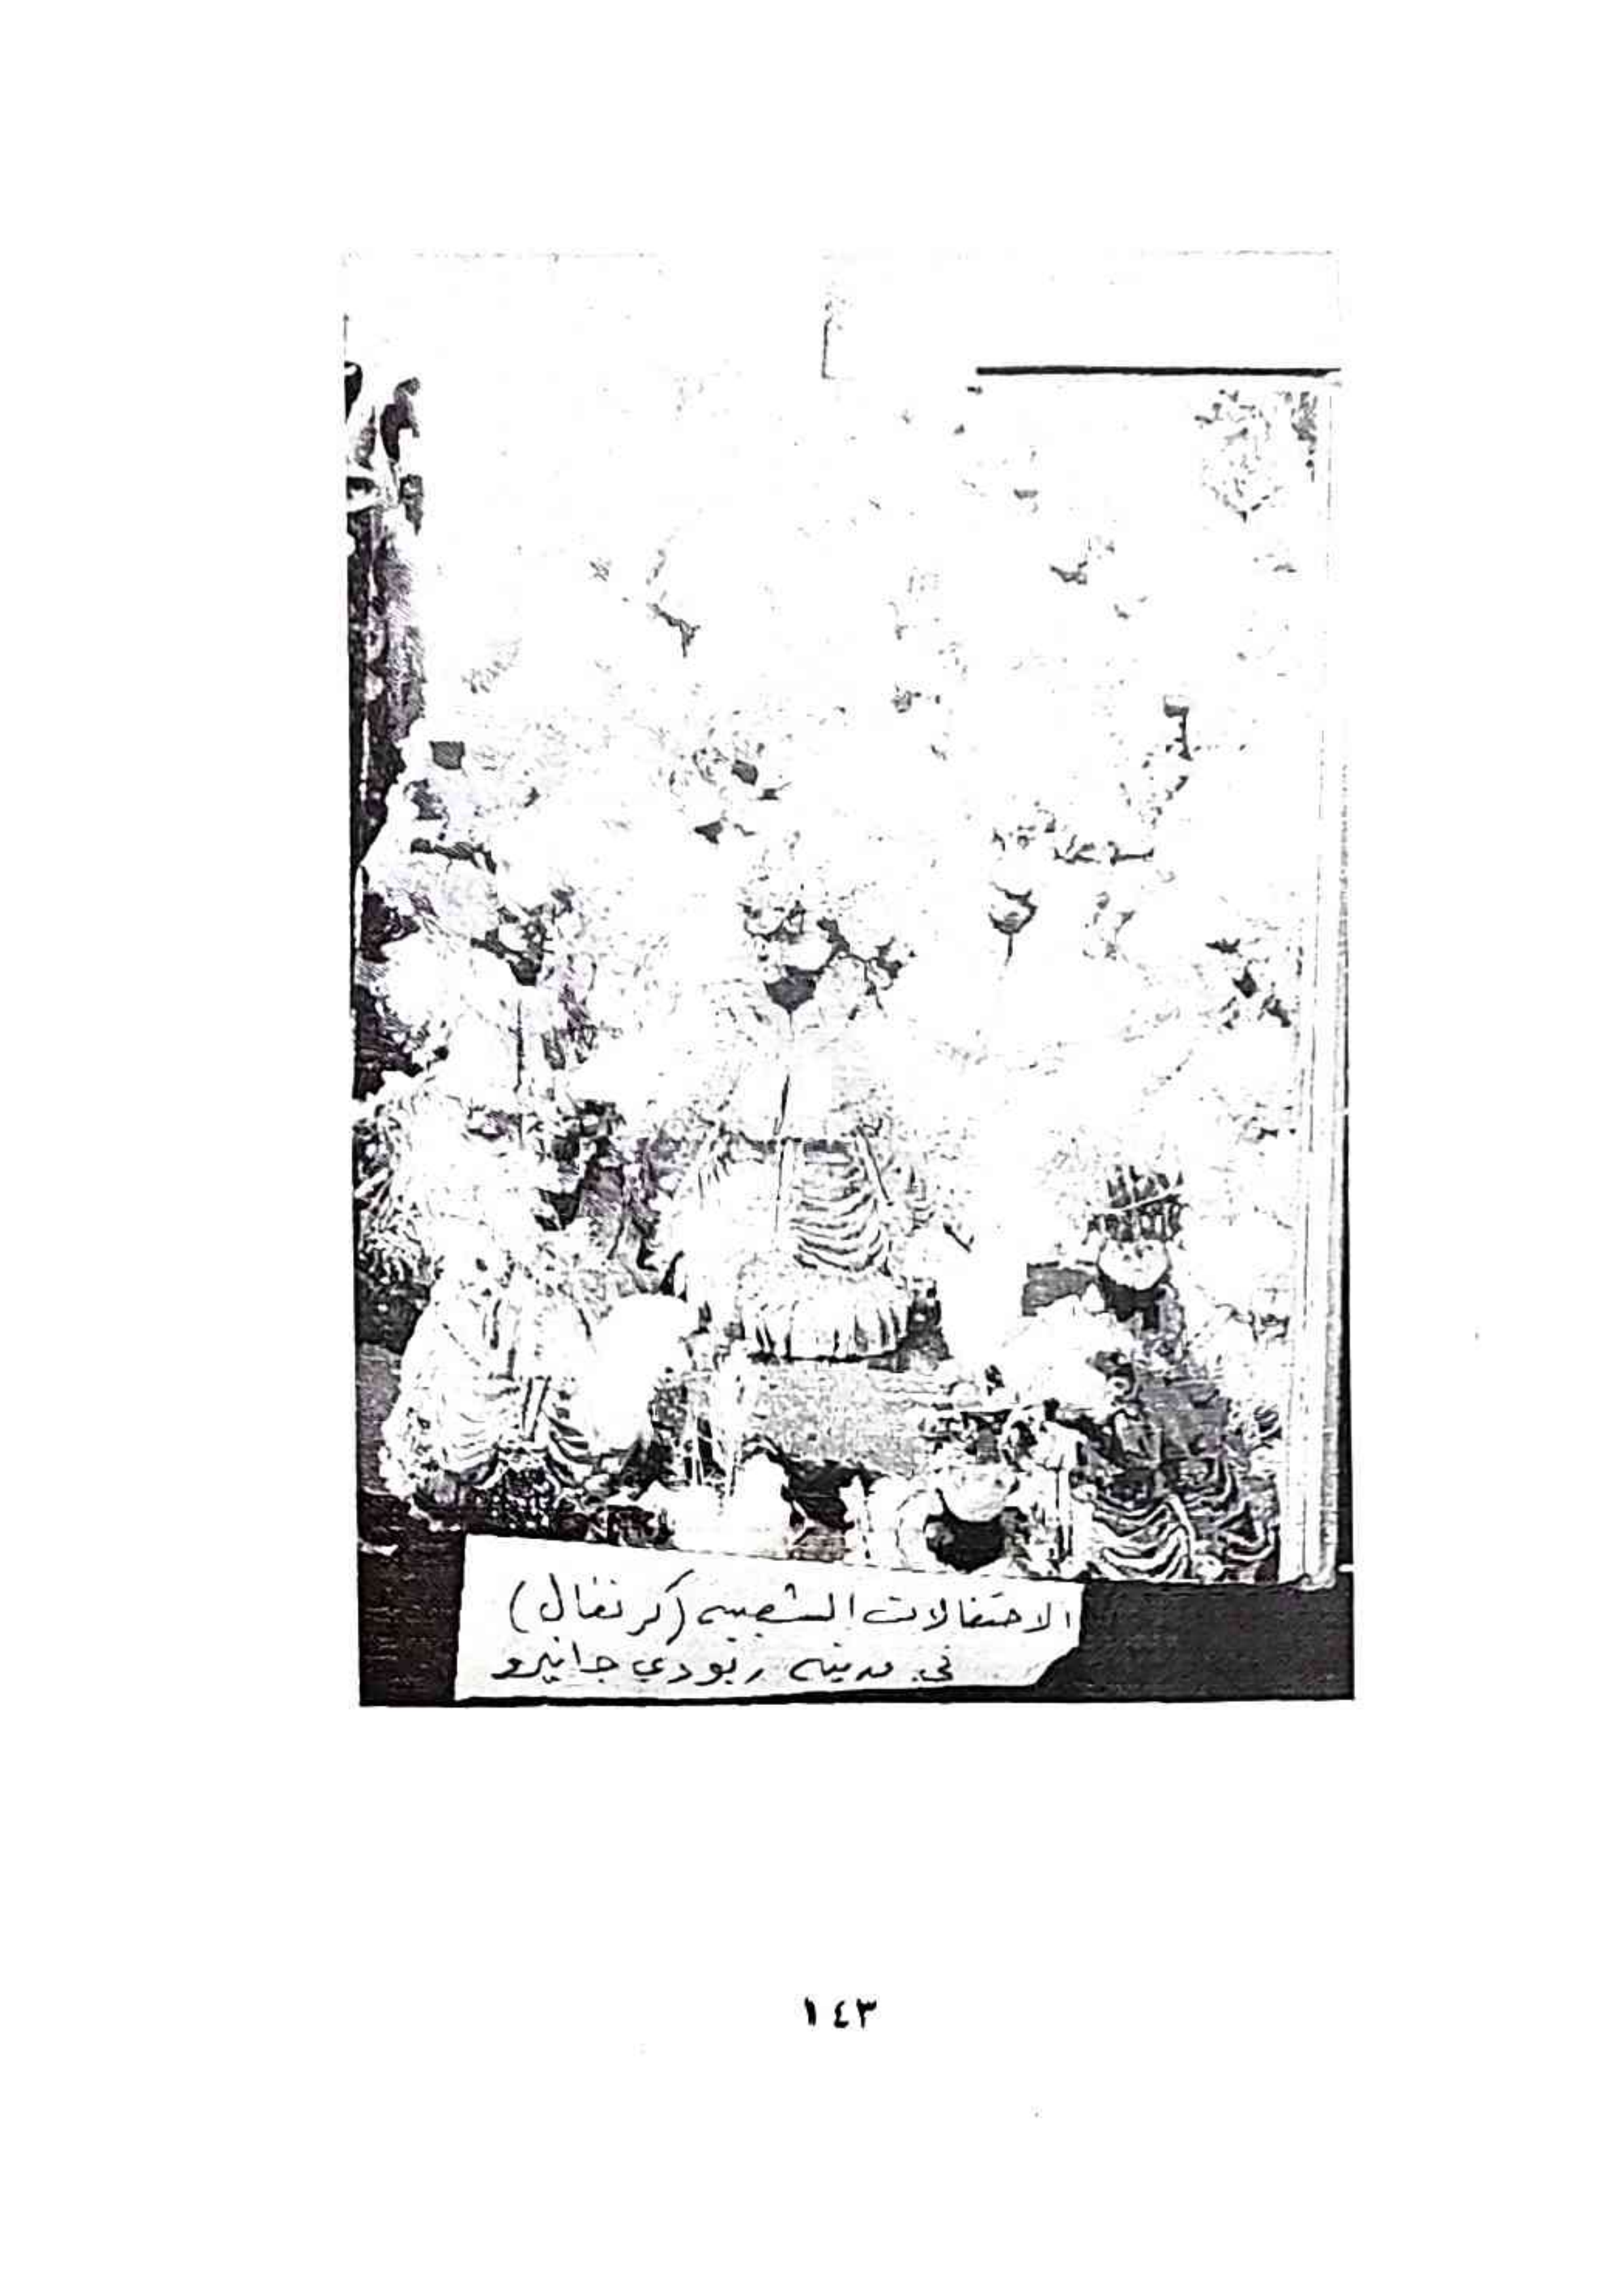 الاحتفالات الشعبيه (كرنفال)
في مدينه ريودي جانيرو
١٤٣